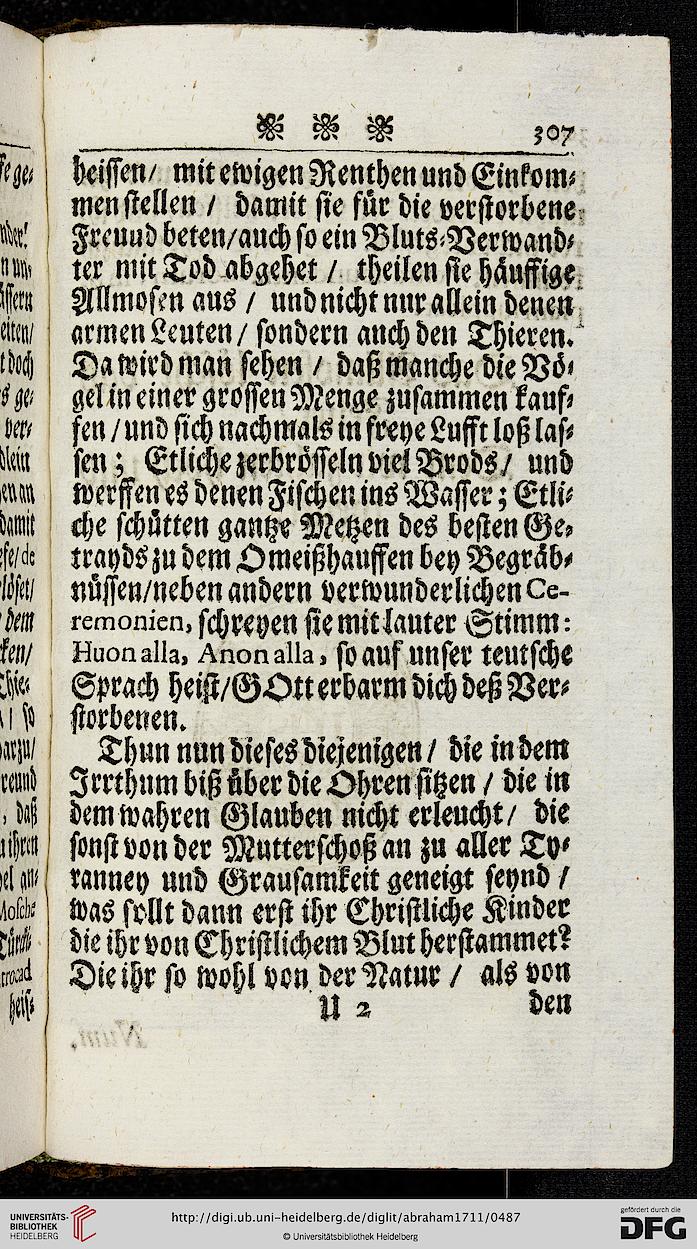 307
heissen/ mit ewigen Renthen und Einkom⸗
men stellen / damit sie für die verstorbene
Freund beten/auch so ein Bluts⸗Verwand⸗
ter mit Tod abgehet / theilen sie häuffige
Allmosen aus / und nicht nur allein denen
armen Leuten / sondern auch den Thieren.
Da wird man sehen / daß manche die Vö⸗
gel in einer grossen Menge zusammen kauf⸗
fen / und sich nachmals in freye Lufft loß las⸗
sen ; Etliche zerbrösseln viel Brods / und
werffen es denen Fischen ins Wasser ; Etli⸗
che schütten gantze Metzen des besten Ge⸗
trayds zu dem Omeißhauffen bey Begräb⸗
nüssen/neben andern verwunderlichen Ce-
remonien, schreyen sie mit lauter Stimm:
Huon alla, Anon alla, so auf unser teutsche
Sprach heist/GOtt erbarm dich deß Ver⸗
storbenen.
Thun nun dieses diejenigen / die in dem
Irrthum biß über die Ohren sitzen / die in
dem wahren Glauben nicht erleucht/ die
sonst von der Mutterschoß an zu aller Ty⸗
ranney und Grausamkeit geneigt seynd /
was sollt dann erst ihr Christliche Kinder
die ihr von Christlichem Blut herstammet?
Die ihr so wohl von der Natur / als von
U 2 den
UNIVERSITÄTS-
BIBLIOTHEK
HEIDELBERG
http://digi.ub.uni-heidelberg.de/diglit/abraham1711/0487
© Universitätsbibliothek Heidelberg
gefördert durch die
DFG